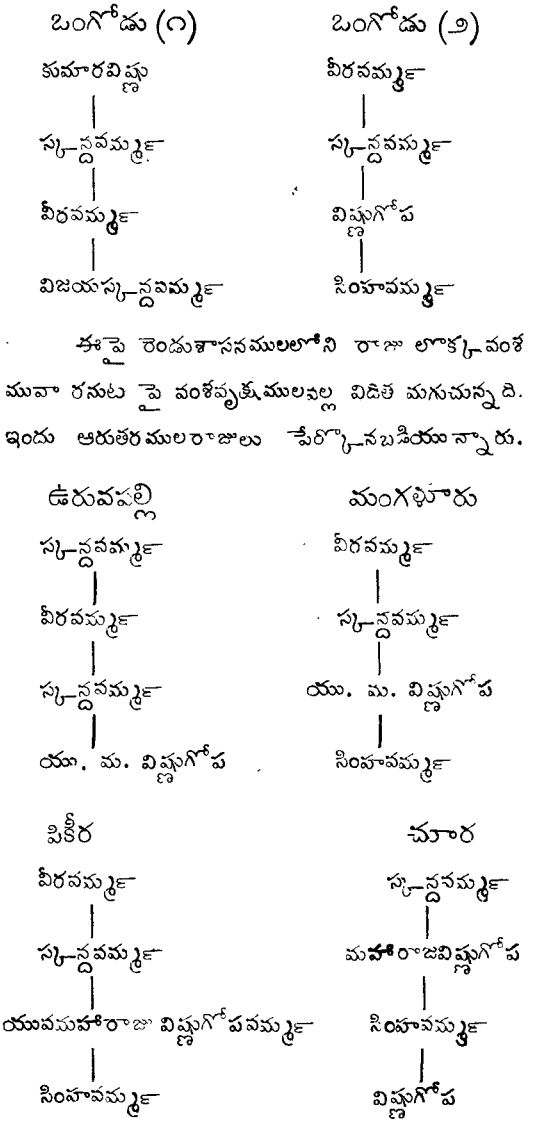 ఒంగోడు (౧)
కుమారవిష్ణు
స్కన్దవర్మ్మ
వీరవర్మ్మ
విజయస్కన్దవర్మ్మ
ఒంగోడు (౨)
వీరవర్మ్మ
స్కన్దవర్మ్మ
విష్ణుగోప
సింహవర్మ్మ
ఈ పై రెండుశాసనములలోని రాజు లొక్కవంశ
మువా రనుట పై వంశవృక్షములవల్ల విదిత మగుచున్నది.
ఇందు ఆరుతరములరాజులు పేర్కొనబడియున్నారు.
ఉరువపల్లి
స్కన్దవర్మ్మ
వీరవర్మ్మ
స్కన్దవర్మ్మ
యు. మ. విష్ణుగోప
మంగళూరు
వీరవర్మ్మ
స్కన్దవర్మ్మ
యు. మ. విష్ణుగోప
సింహవర్మ్మ
పికీర
వీరవర్మ్మ
స్కన్దవర్మ్మ
యువమహారాజు విష్ణుగోపవర్మ్మ
సింహవర్మ్మ
చూర
స్కన్దవర్మ్మ
మహారాజవిష్ణుగోప
సింహవర్మ్మ
విష్ణుగోప